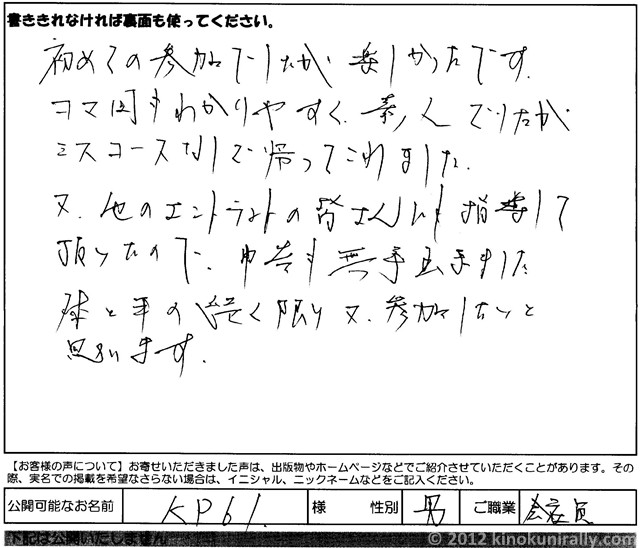 書ききれなければ裏面も使ってください。
初めての参加でしたが 楽しかったです。
コマ図もわかりやすく、素人でしたが
ミスコースなしで帰ってこれました。
又、他のエントラントの皆さんにも指導して
頂いたので、申告も無事出来ました
体と車の続く限り又、参加したいと
思います。
【お客様の声について】お寄せいただきました声は、出版物やホームページなどでご紹介させていただくことがあります。その
際、実名での掲載を希望なさらない場合は、イニシャル、ニックネームなどをご記入ください。
公開可能なお名前 KP61 様 性別 男 ご職業 会社員
下記は公開いたしません
© 2012 kinokunirally.com